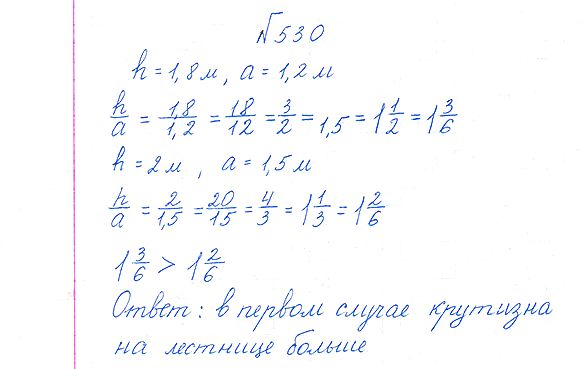 №530
h = 1,8 м, a = 1,2 м
h/a = 1,8/1,2 = 18/12 = 3/2 = 1,5 = 1 1/2 = 1 3/6
h = 2 м, a = 1,5 м
h/a = 2/1,5 = 20/15 = 4/3 = 1 1/3 = 1 2/6
1 3/6 > 1 2/6
Ответ: в первом случае крутизна
на лестнице больше